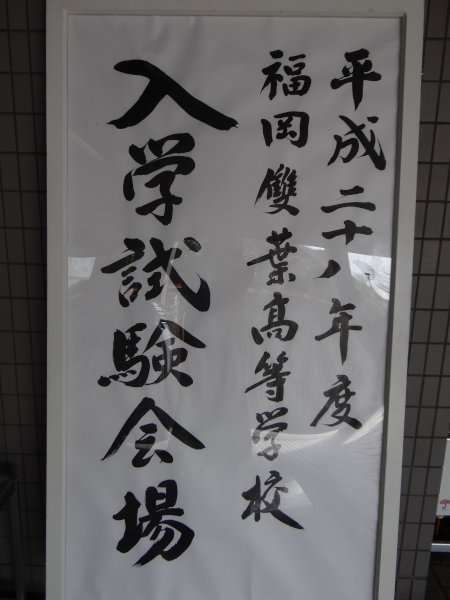 平成二十八年度
福岡雙葉高等学校
入学試験会場